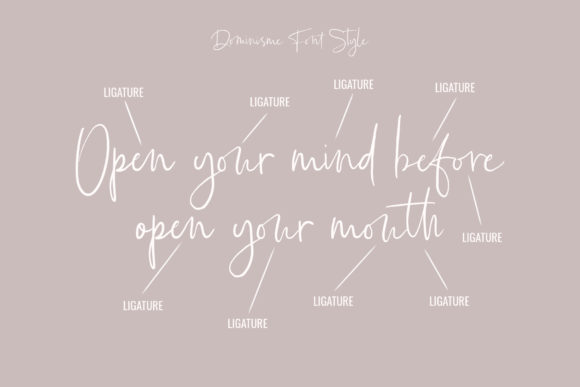 Dominisme Font Style
LIGATURE LIGATURE LIGATURE LIGATURE
Open your mind before
open your mouth
LIGATURE
LIGATURE LIGATURE LIGATURE LIGATURE